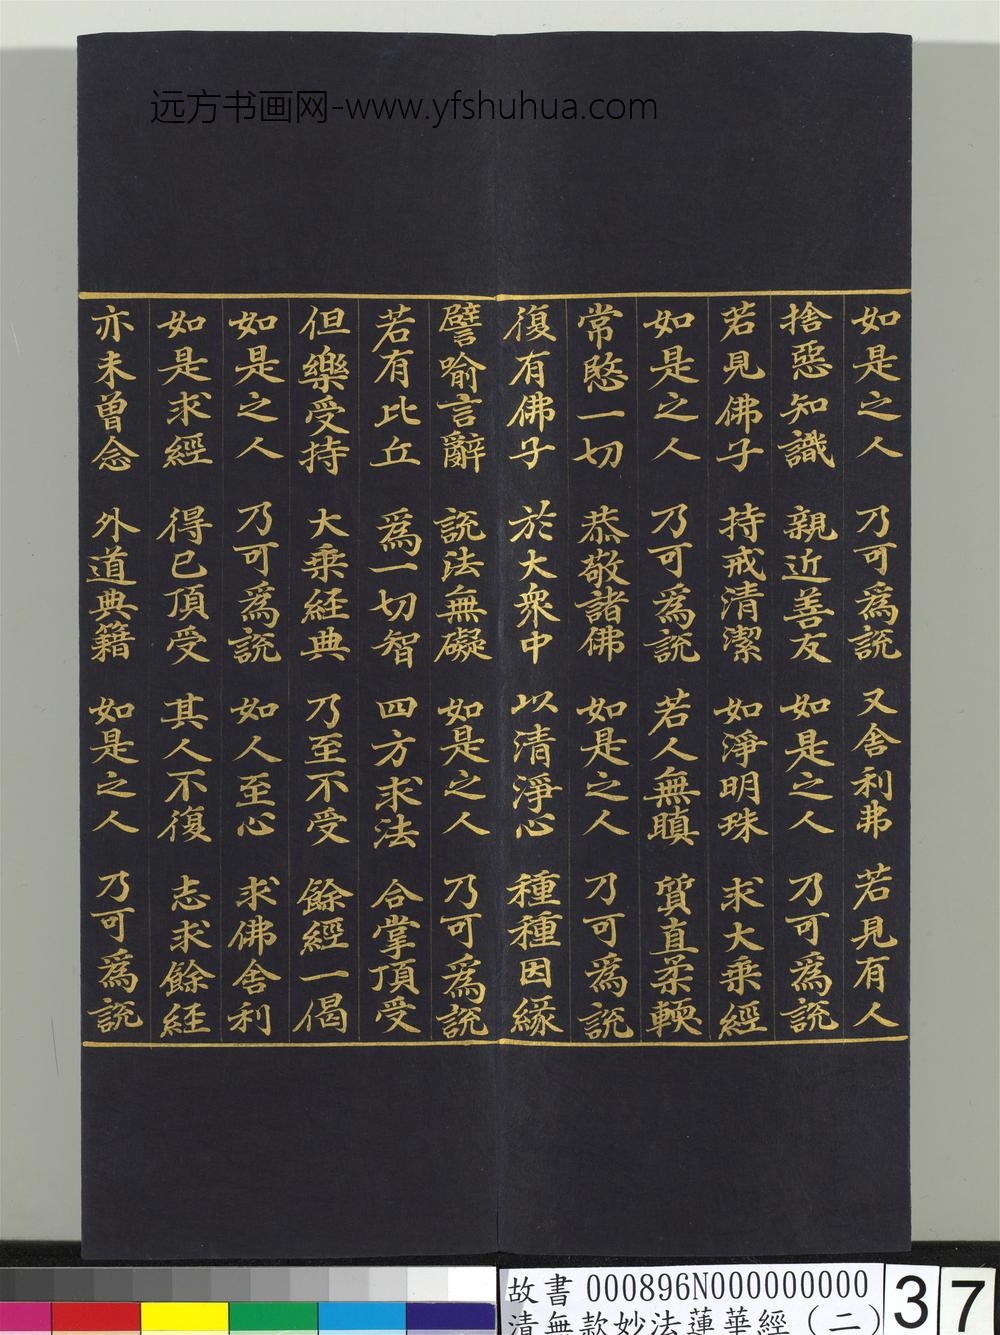 远方书画网-www.yfshuhua.com
如是之人 乃可為說 又舍利弗 若見有人
捨惡知識 親近善友 如是之人 乃可為說
若見佛子 持戒清潔 如淨明珠 求大乘經
如是之人 乃可為說 若人無瞋 質直柔輭
常愍一切 恭敬諸佛 如是之人 乃可為說
復有佛子 於大衆中 以清淨心 種種因緣
譬喻言辭 說法無礙 如是之人 乃可為說
若有比丘 為一切智 四方求法 合掌頂受
但樂受持 大乘經典 乃至不受 餘經一偈
如是之人 乃可為說 如人至心 求佛舍利
如是求經 得已頂受 其人不復 志求餘經
亦未曾念 外道典籍 如是之人 乃可為說
故書 000896N000000000
清無款妙法蓮華經(二)
37